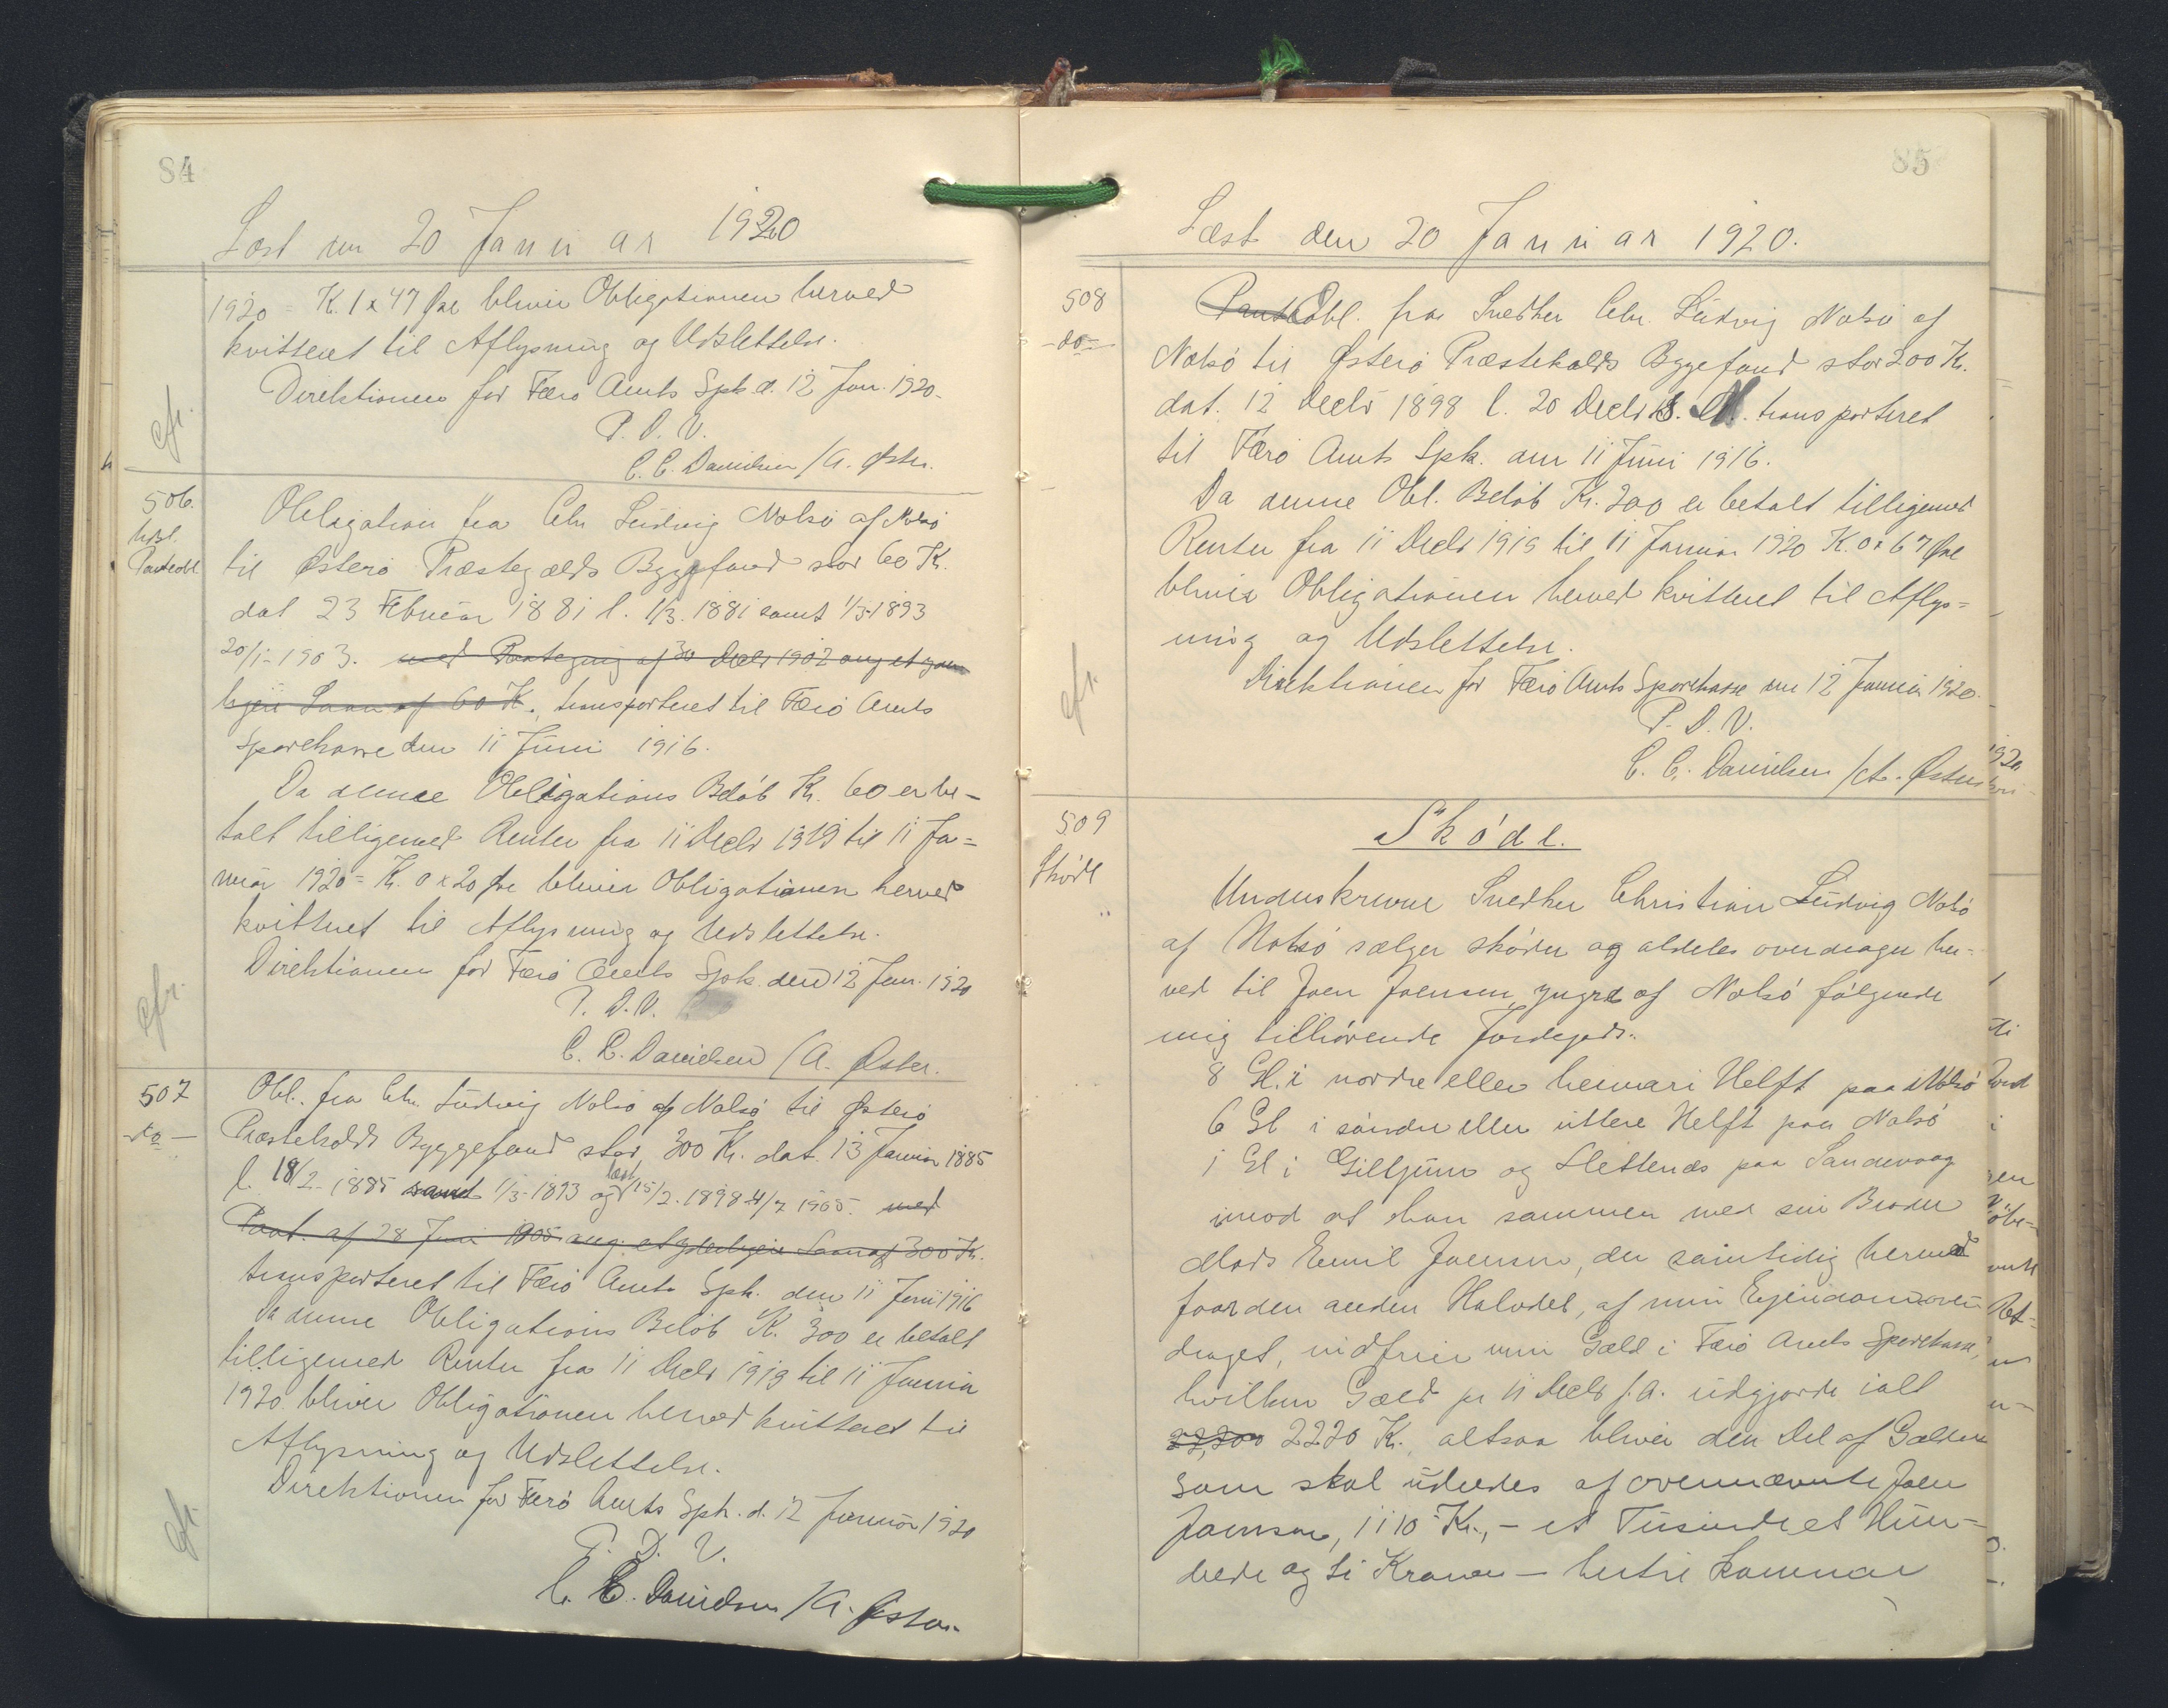 84
Læst den 20 Januar 1920
1920 = K. 1 x 47 Øre bliver Obligationen herved
kvitteret til Aflysning og Udslettelse.
Direktionen for Færö Amts Spk. d. 12 Jan. 1920.
P. D. V.
C. C. Danielsen / A. Øster.
cfr.
506.
Udsl.
Panteobl.
Obligation fra Chr Ludvig Nolsö af Nolsö
til Österö Præstegælds Byggefond stor 60 K.
dat 23 Februar 1881 l. 1/3. 1881 samt 1/3-1893
20/1-1903. med Paategning af 30 Decbr 1902 ang et yder
ligere Laan af 60 K., transporteret til Færö Amts
Sparekasse den 11 Juni 1916.
Da denne Obligations Belöb K. 60 er be-
talt tilligemed Renter fra 11 Decbr 1919 til 11 Ja=
nuar 1920 = K. 0 x 20 Øre bliver Obligationen herved
kvitteret til Aflysning og Udslettelse.
Direktionen for Færö Amts Spk. den 12 Jan. 1920
P. D. V.
C. C. Danielsen / A. Øster.
cfr.
507
- do -
Obl. fra Chr. Ludvig Nolsö af Nolsö til Österö
Præstekalds Byggefond stor 300 Kr. dat. 13 Januar 1885
l. 18/2-1885 samt 1/3-1893 og læst 15/2.1898 4/7 1905. med
Paat. af 28 Juni 1905 ang. et yderligere Laan af 300 K.
transporteret til Færö Amts Spk. den 11 Juni 1916
Da denne Obligations Belöb K. 300 er betalt
tilligemed Renter fra 11 Decbr 1919 til 11 Januar
1920 bliver Obligationen herved kvitteret til
Aflysning og Udslettelse.
Direktionen for Færö Amts Spk. d. 12 Januar 1920
P. D. V.
C. C. Danielsen / A. Øster.
cfr.
85
Læst den 20 Januar 1920.
508
- do -
Pante Obl. fra Snedker Chr. Ludvig Nolsö af
Nolsö til Österö Præstekalds Byggefond stor 200 K.
dat. 12 Decbr 1898 l. 20 Decbr s. A. transporteret
til Færö Amts Spk. den 11 Juni 1916.
Da denne Obl. Belöb Kr. 200 er betalt tilligemed
Renter fra 11 Decbr 1919 til 11 Januar 1920 K. 0 x 67 Øre
bliver Obligationen herved kvitteret til Aflys=
ning og Udslettelse.
Direktionen for Færö Amts Sparekasse den 12 Januar 1920.
P. D. V.
C. C. Danielsen / A. Øster
cfr.
509
Sködl
Sköde.
Underskrevne Snedker Christian Ludvig Nolsö
af Nolsö sælger sköder og aldeles overdrager her-
ved til Joen Joensen yngre af Nolsö fölgende
mig tilhörende Jordegods:
8 Gl. i nordre eller heimari Helft paa Nolsö
6 Gl i söndre eller uttere Helft paa Nolsö
1 Gl i Giljum og Slettenæs paa Sandevaag
imod at han sammen med sin Broder
Mads Emil Joensen, der samtidig hermed
faar den anden Halvdel, af min Ejendom over-
draget, indfrier min Gæld i Færö Amts Sparekasse,
hvilken Gæld pr 11 Decbr f. A. udgjorde ialt
22,200 2220 K., altsaa bliver den Del af Gælden
som skal udredes af ovennævnte Joen
Joensen, 1110 Kr, - et Tusinde et Hun-
drede og ti Kroner - hertil kommer